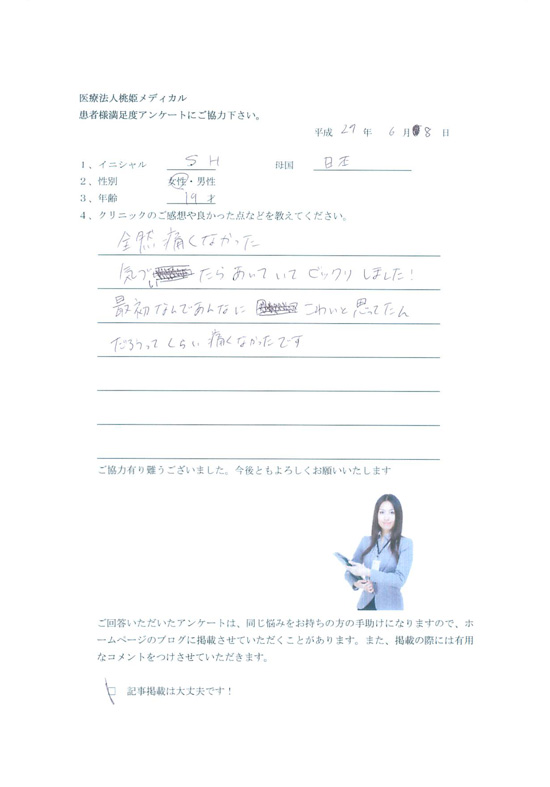 医療法人桃姫メディカル
患者様満足度アンケートにご協力下さい。
平成 29 年 6 月 8 日
1、イニシャル S H 母国 日本
2、性別 女性・男性
3、年齢 19才
4、クリニックのご感想や良かった点などを教えてください。
全然痛くなかった
気づいたらあいていてビックリしました!
最初なんであんなに こわいと思ってたん
だろうってくらい痛くなかったです
ご協力有り難うございました。今後ともよろしくお願いいたします
ご回答いただいたアンケートは、同じ悩みをお持ちの方の手助けになりますので、ホ
ームページのブログに掲載させていただくことがあります。また、掲載の際には有用
なコメントをつけさせていただきます。
□ 記事掲載は大丈夫です!